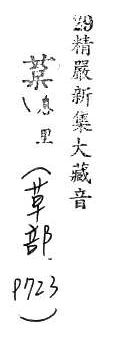 29精嚴新集大藏音
葈息里(草部P723)